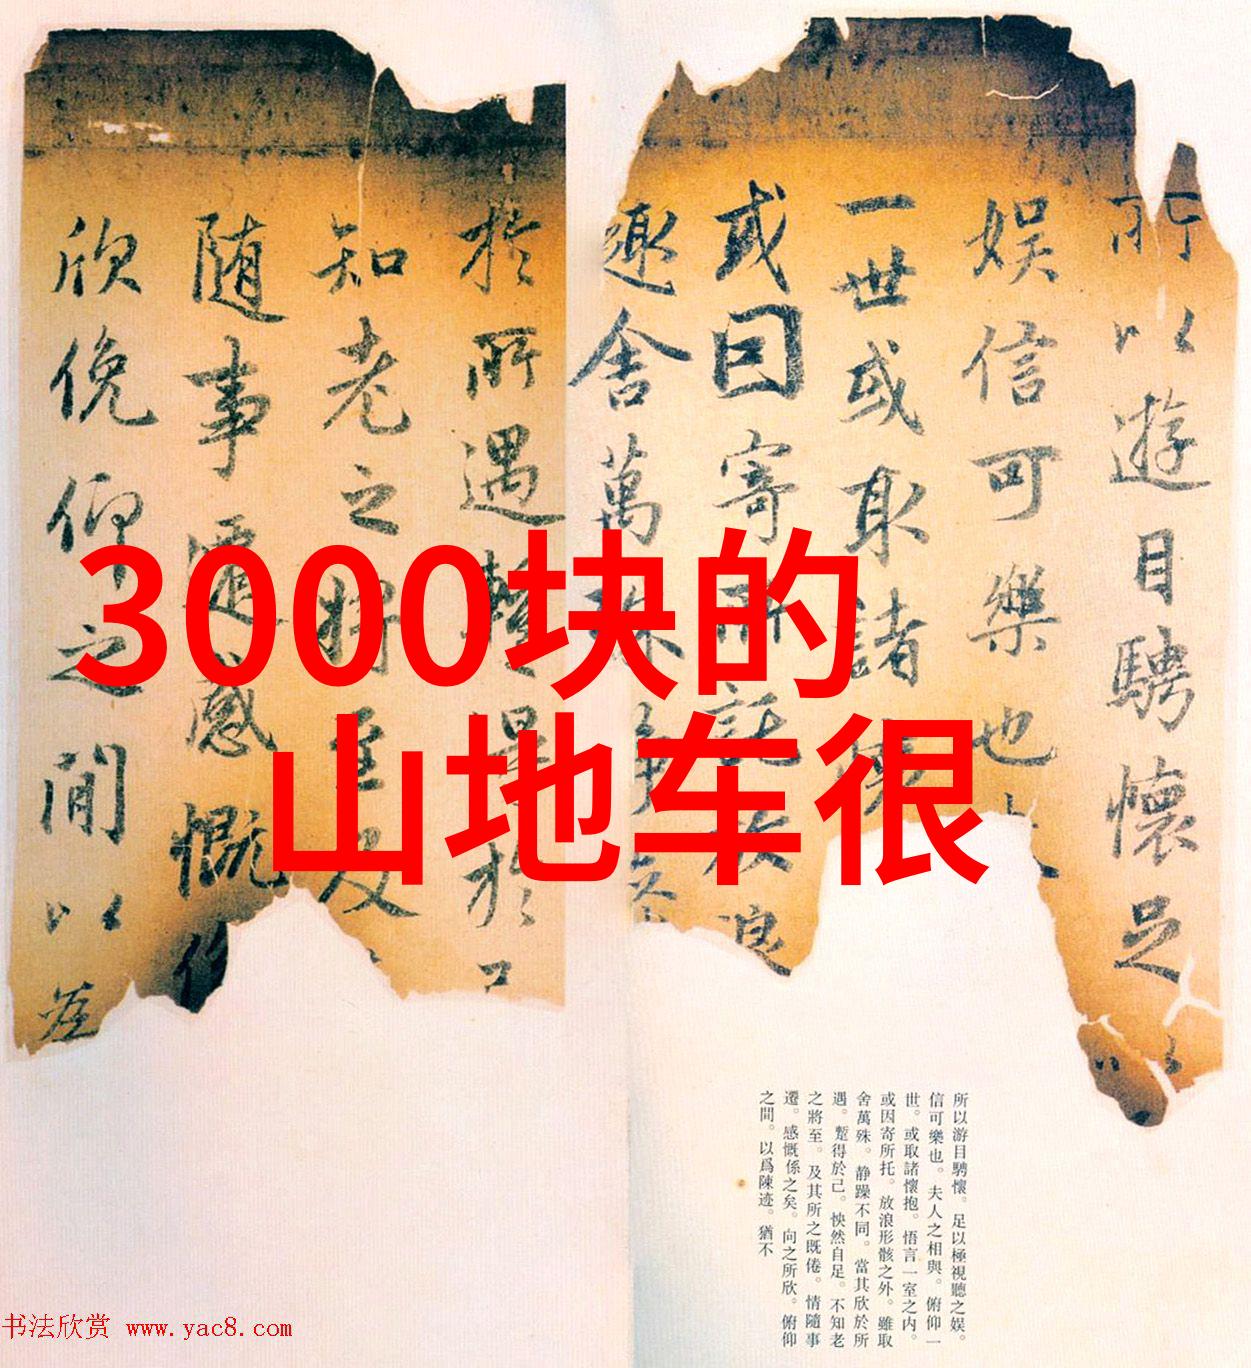 所以遊目騁懷足
娛信可樂也
一世或取諸
或因寄所託放浪
趣舍萬殊靜
於所遇暫得於己
知老之將至及
随事遷感慨係
欣俛仰之間以為
3000块的
山地车很
所以游目騁懷。足以極視聽之娱。
信可樂也。夫人之相與。俯仰一
世。或取諸懷抱。悟言一室之内。
或因寄所托。放浪形骸之外。雖取
舍萬殊。静躁不同。當其欣於所
遇。蹔得於己。怏然自足。不知老
之將至。及其所之既倦。情隨事
遷。感慨係之矣。向之所欣。俯仰
之間。以爲陳迹。猶不
书法欣赏 www.yac8.com